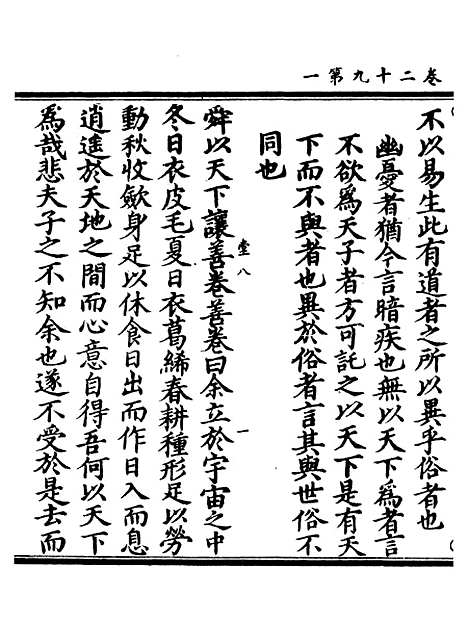 卷二十九第一
不以易生此有道者之所以異乎俗者也
幽憂者猶今言暗疾也無以天下爲者言
不欲爲天子者方可託之以天下是有天
下而不與者也異於俗者言其與世俗不
同也
堂八
一
舜以天下讓善卷善卷曰余立於宇宙之中
冬日衣皮毛夏日衣葛絺春耕種形足以勞
動秋收斂身足以休食日出而作日入而息
逍遙於天地之間而心意自得吾何以天下
爲哉悲夫子之不知余也遂不受於是去而